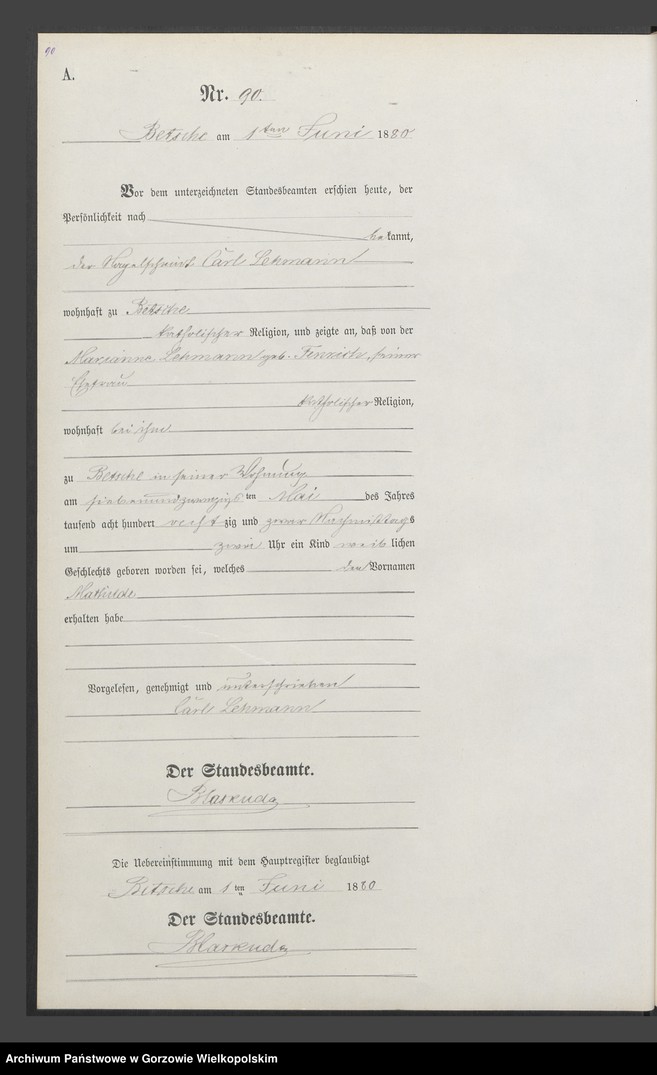 90
A.
Nr. 90.
Betsche am 1ten Juni 1880
Vor dem unterzeichneten Standesbeamten erschien heute, der
Persönlichkeit nach
bekannt,
der Nagelschmidt Carl Lehmann
wohnhaft zu Betsche
katholischer Religion, und zeigte an, daß von der
Marianne Lehmann geb. seiner
Ehefrau
katholischer Religion,
wohnhaft bei ihm
zu Betsche in seiner Wohnung
am siebenundzwanzigsten Mai des Jahres
tausend acht hundert achtzig und zwar Nachmittags
um zwei Uhr ein Kind weiblichen
Geschlechts geboren worden sei, welches den Vornamen
Mathilde
erhalten habe
Vorgelesen, genehmigt und unterschrieben
Carl Lehmann
Der Standesbeamte.
Die Uebereinstimmung mit dem Hauptregister beglaubigt
Betsche am 1ten Juni 1880
Der Standesbeamte.
Archiwum Państwowe w Gorzowie Wielkopolskim